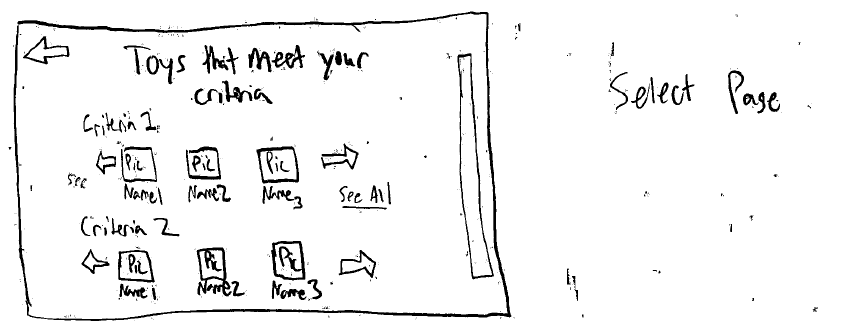 Toys that meet your
criteria
Select Page
Criteria 1
Pic Pic Pic
see
Name1 Name2 Name3 See All
Criteria 2
Pic Pic Pic
Name1 Name2 Name3